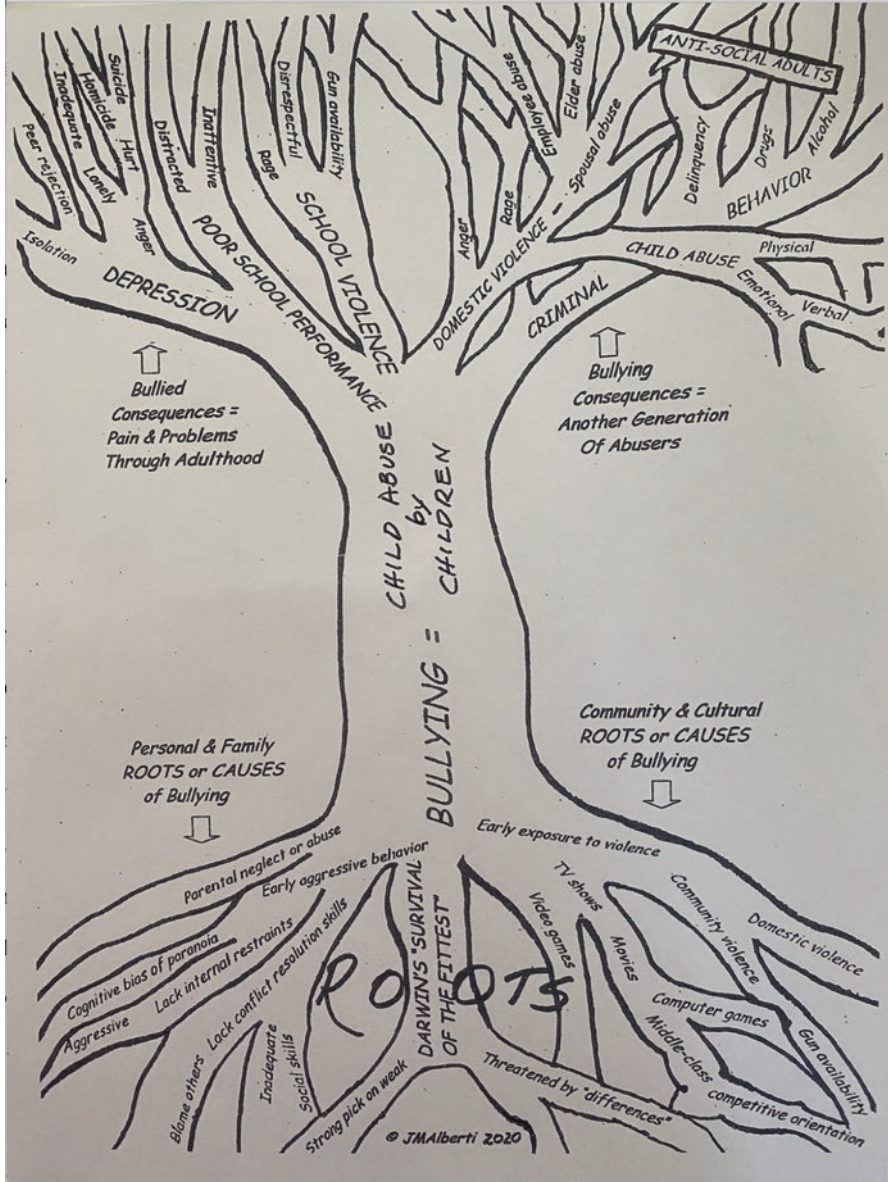 ANTI-SOCIAL ADULTS
Suicide
Homicide
Inadequate
Peer rejection
Isolation
Lonely
Hurt
Anger
DEPRESSION
Distracted
Inattentive
POOR SCHOOL PERFORMANCE
Rage
Disrespectful
Gun availability
SCHOOL VIOLENCE
Anger
Rage
Employee abuse
Elder abuse
DOMESTIC VIOLENCE - Spousal abuse
Delinquency
Drugs
Alcohol
CRIMINAL
BEHAVIOR
CHILD ABUSE
Physical
Emotional
Verbal
Bullied
Consequences =
Pain & Problems
Through Adulthood
Bullying
Consequences =
Another Generation
Of Abusers
BULLYING =
CHILD ABUSE
by
CHILDREN
Personal & Family
ROOTS or CAUSES
of Bullying
Community & Cultural
ROOTS or CAUSES
of Bullying
Parental neglect or abuse
Early aggressive behavior
Cognitive bias of paranoia
Aggressive
Lack internal restraints
Lack conflict resolution skills
Blame others
Inadequate
Social skills
Strong pick on weak
DARWIN'S "SURVIVAL
OF THE FITTEST"
ROOTS
Early exposure to violence
TV shows
Video games
Movies
Community violence
Domestic violence
Computer games
Gun availability
Middle-class competitive orientation
Threatened by "differences"
© JMAlberti 2020